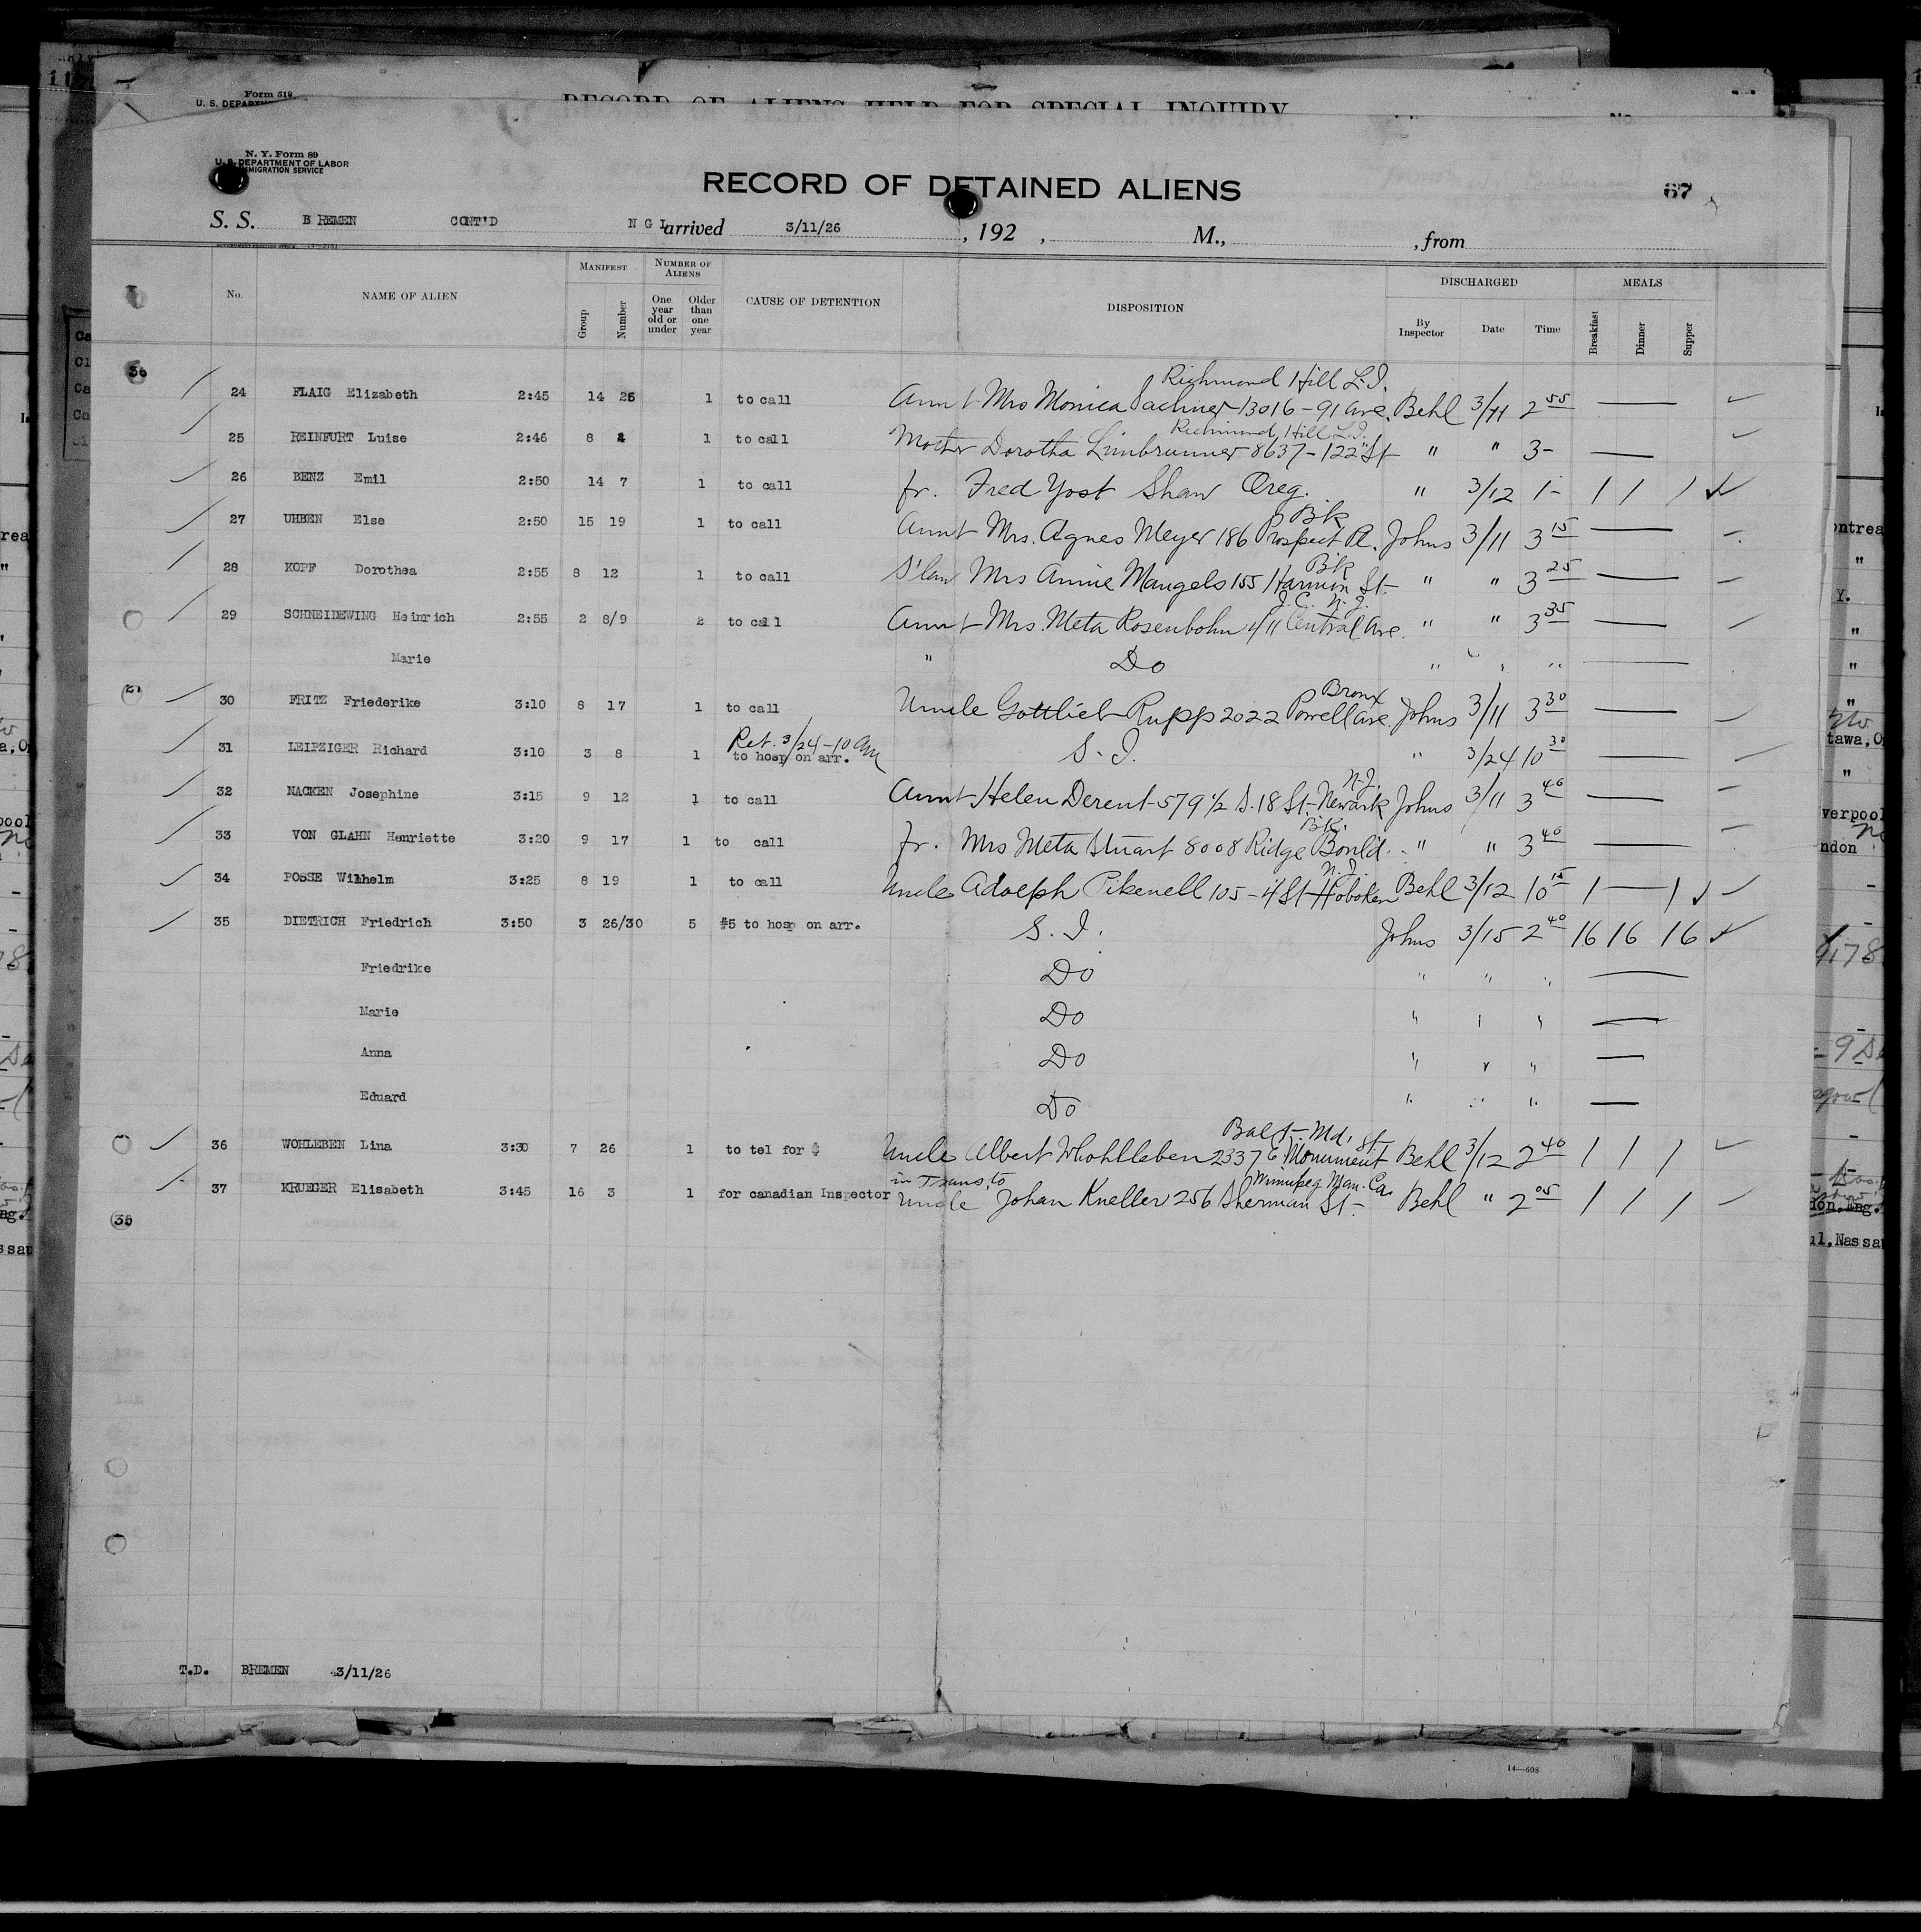 Form 518
U. S. DEPARTMENT
RECORD OF ALIENS HELD FOR SPECIAL INQUIRY.
No.
N. Y. Form 89
U. S. DEPARTMENT OF LABOR
IMMIGRATION SERVICE
RECORD OF DETAINED ALIENS
67
S. S. BREMEN CONT'D N G L arrived 3/11/26 , 192 , M., , from
No. NAME OF ALIEN MANIFEST Group Number NUMBER OF ALIENS One year old or under Older than one year CAUSE OF DETENTION DISPOSITION DISCHARGED By Inspector Date Time MEALS Breakfast Dinner Supper
36
Richmond Hill L.I.
24 FLAIG Elizabeth 2:45 14 26 1 to call Aunt Mrs Monica 13016-91 Ave. Behl 3/11 2 55 —
Richmond Hill L.I.
25 REINFURT Luise 2:46 8 4 1 to call Mother Dorotha Limbrunner 8637-122" St " " 3- —
26 BENZ Emil 2:50 14 7 1 to call fr. Fred Yost Shaw Oreg. " 3/12 1- 1 1 1
Bk
27 UHBEN Else 2:50 15 19 1 to call Aunt Mrs. Agnes Meyer 186 Prospect Pl. Johns 3/11 3 15 —
Bk
28 KOPF Dorothea 2:55 8 12 1 to call S'law Mrs Annie Mangels 155 Harmon St. " " 3 25 —
J.C. N.J.
29 SCHNEIDEWING Heinrich 2:55 2 8/9 2 to call Aunt Mrs. Meta Rosenbohm 411 Central Ave. " " 3 35 —
Marie " Do " " " —
27
Bronx
30 FRITZ Friederike 3:10 8 17 1 to call Uncle Gottlieb Rupp 2022 Powell Ave. Johns 3/11 3 30 —
Ret. 3/24-10 AM
31 LEIPZIGER Richard 3:10 3 8 1 to hosp on arr. S. I. " 3/24 10 30 —
N.J.
32 NACKEN Josephine 3:15 9 12 1 to call Aunt Helen Derent-579 1/2 S. 18 St-Newark Johns 3/11 3 40 —
Bk.
33 VON GLAHN Henriette 3:20 9 17 1 to call fr. Mrs Meta Stuart 8008 Ridge Bould. " " 3 40 —
N.J.
34 POSSE Wilhelm 3:25 8 19 1 to call Uncle Adolph Pikenell 105-4 St-Hoboken Behl 3/12 10 15 1 — 1
35 DIETRICH Friedrich 3:50 3 26/30 5 #5 to hosp on arr. S. I. Johns 3/15 2 40 16 16 16
Friedrike Do " " " —
Marie Do " " " —
Anna Do " " " —
Eduard Do " " " —
Balt-Md. St.
36 WOHLEBEN Lina 3:30 7 26 1 to tel for $ Uncle Albert Whohlleben 2337 E Monument Behl 3/12 2 40 1 1 1
in Trans. to Winnipeg Man. Ca.
37 KRUEGER Elisabeth 3:45 16 3 1 for canadian Inspector Uncle Johan Kneller 256 Sherman St- Behl " 2 05 1 1 1
35
T.D. BREMEN 3/11/26
14—608